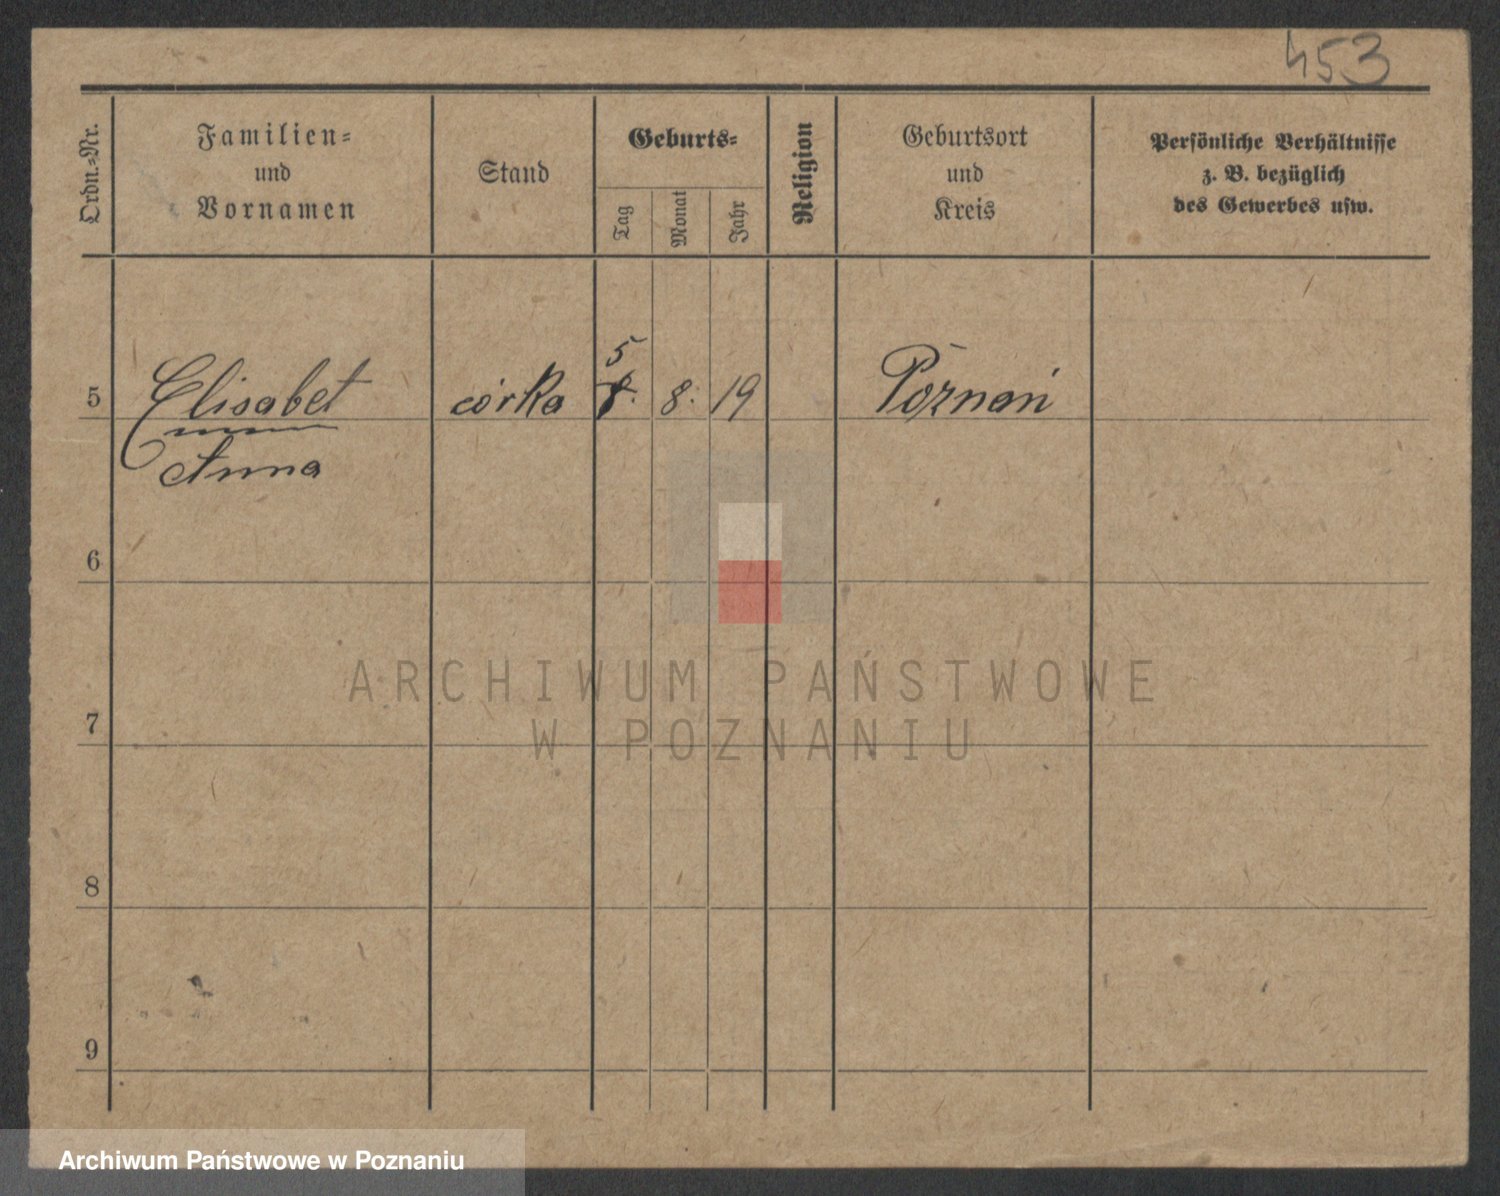 453
Ordn.-Nr.
Familien-
und
Vornamen
Stand
Geburts-
Tag
Monat
Jahr
Religion
Geburtsort
und
Kreis
Persönliche Verhältnisse
z. B. bezüglich
des Gewerbes usw.
5
5 Elisabet córka 8. 8. 19 Poznań
Anna
6
ARCHIWUM PAŃSTWOWE
7
W POZNANIU
8
9
Archiwum Państwowe w Poznaniu